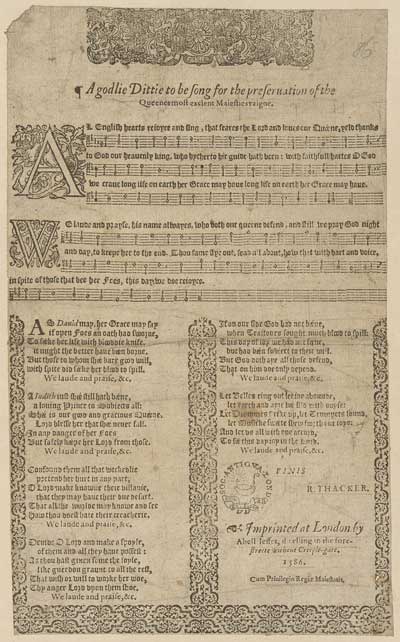 ¶ A godlie Dittie to be song for the preseruation of the
Queenes most exclent Maiesties raigne.
AL English hearts reioyce and sing, that feares the Lord and loues our Quæne, yeld thanks
to God our heauenly king, who hytherto hir guide hath been: with faithfull hartes O God
we craue long life on earth her Grace may haue long life on earth her Grace may haue.
WE laude and prayse, his name alwayes, who doth our queene defend, and still we pray God night
and day, to keepe her to the end. Thou fame flye out, about, how this with hart and voice,
in spite of those that bee her foes, this day we doe reioyce.
AS Dauid may, her Grace may say
if open foes an oath had swoyne,
To seeke her life with bloodie knife.
it might the better haue bin borne.
But those to whom she bare good will,
with spite did seeke her blood to spill.
We laude and praise, &c.
A Iudith and she still hath bene,
a louing Prince to
Who is our gracious Quæne.
Lord blesse her that she neuer fall.
In any danger of her foes
But safely kepe her Lord from those.
We laude and praise, &c.
Confound them all that
pretend her hurt in any part,
O Lord make knowne their villanie,
that they may haue their due desart.
That all the world may know and see
how thou doest hate their treacherie.
We laude and praise, &c.
Deuide O Lord and make a spoyle,
of them and all they haue possest:
As thou hast giuen some the foyle,
like guerdon graunt to all the rest,
That wish or will to worke her woe,
Thy anger Lord vpon them throw,
We laude and praise, &c.
If on our side God had not bene,
when Traitours sought much blood to spill:
This day of ioy we had not sene,
but had bin subiect to their will.
But God doth aye all those defend,
That on him doe only depend.
We laude and praise, &c.
Let Belles ring out
let earth and ayre be fild with ioyes:
Let Drommes strike vp, let Trumpets sound,
let Musicke their toyes.
And let vs all with one accord,
To this day in the Lord.
We laude and praise, &c.
FINIS
R. THACKER.
Imprinted at London by
Abell Ieffes, dwelling in the fore-
streete without Creeple-gate.
1586.
Cum Priuilegio Regiæ Maiestatis.